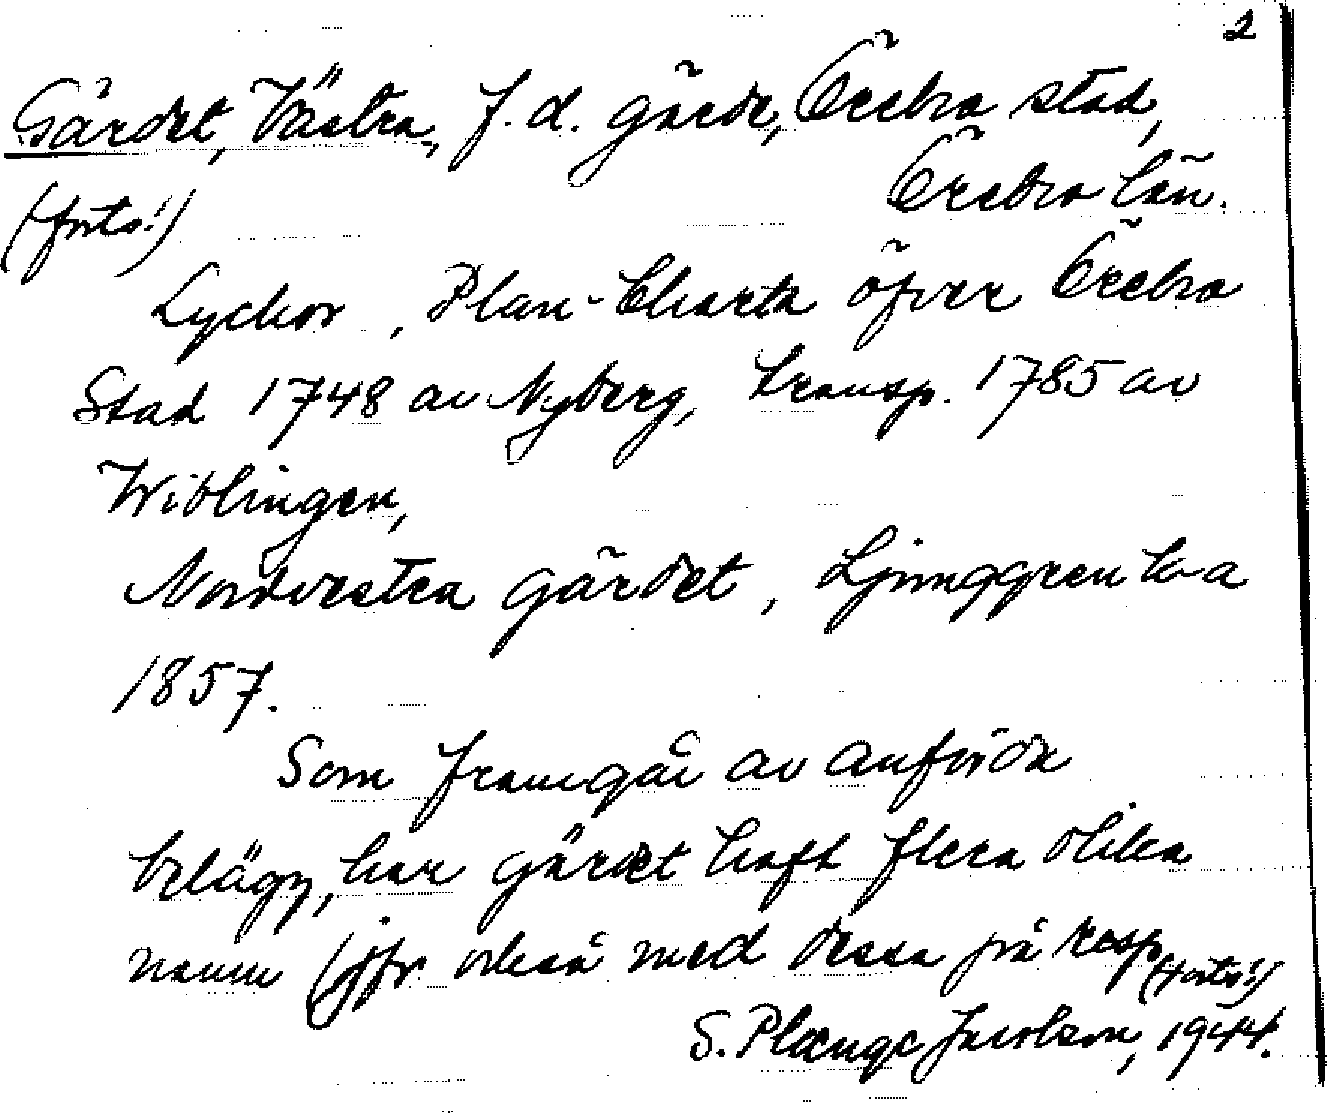 2
Gärdet, Västra, f.d. gärde, Örebro stad,
Örebro län.
(forts!)
Lyckor, Plan-Charta öfver Örebro
Stad 1748 av Nyberg, transp. 1785 av
Wiblingen,
Nordvestra gärdet, Ljunggren ka
1857.
Som framgår av anförda
belägg, har gärdet haft flera olika
namn (jfr också med dessa på resp
(forts!)
S. Plænge Jacobson, 1944.